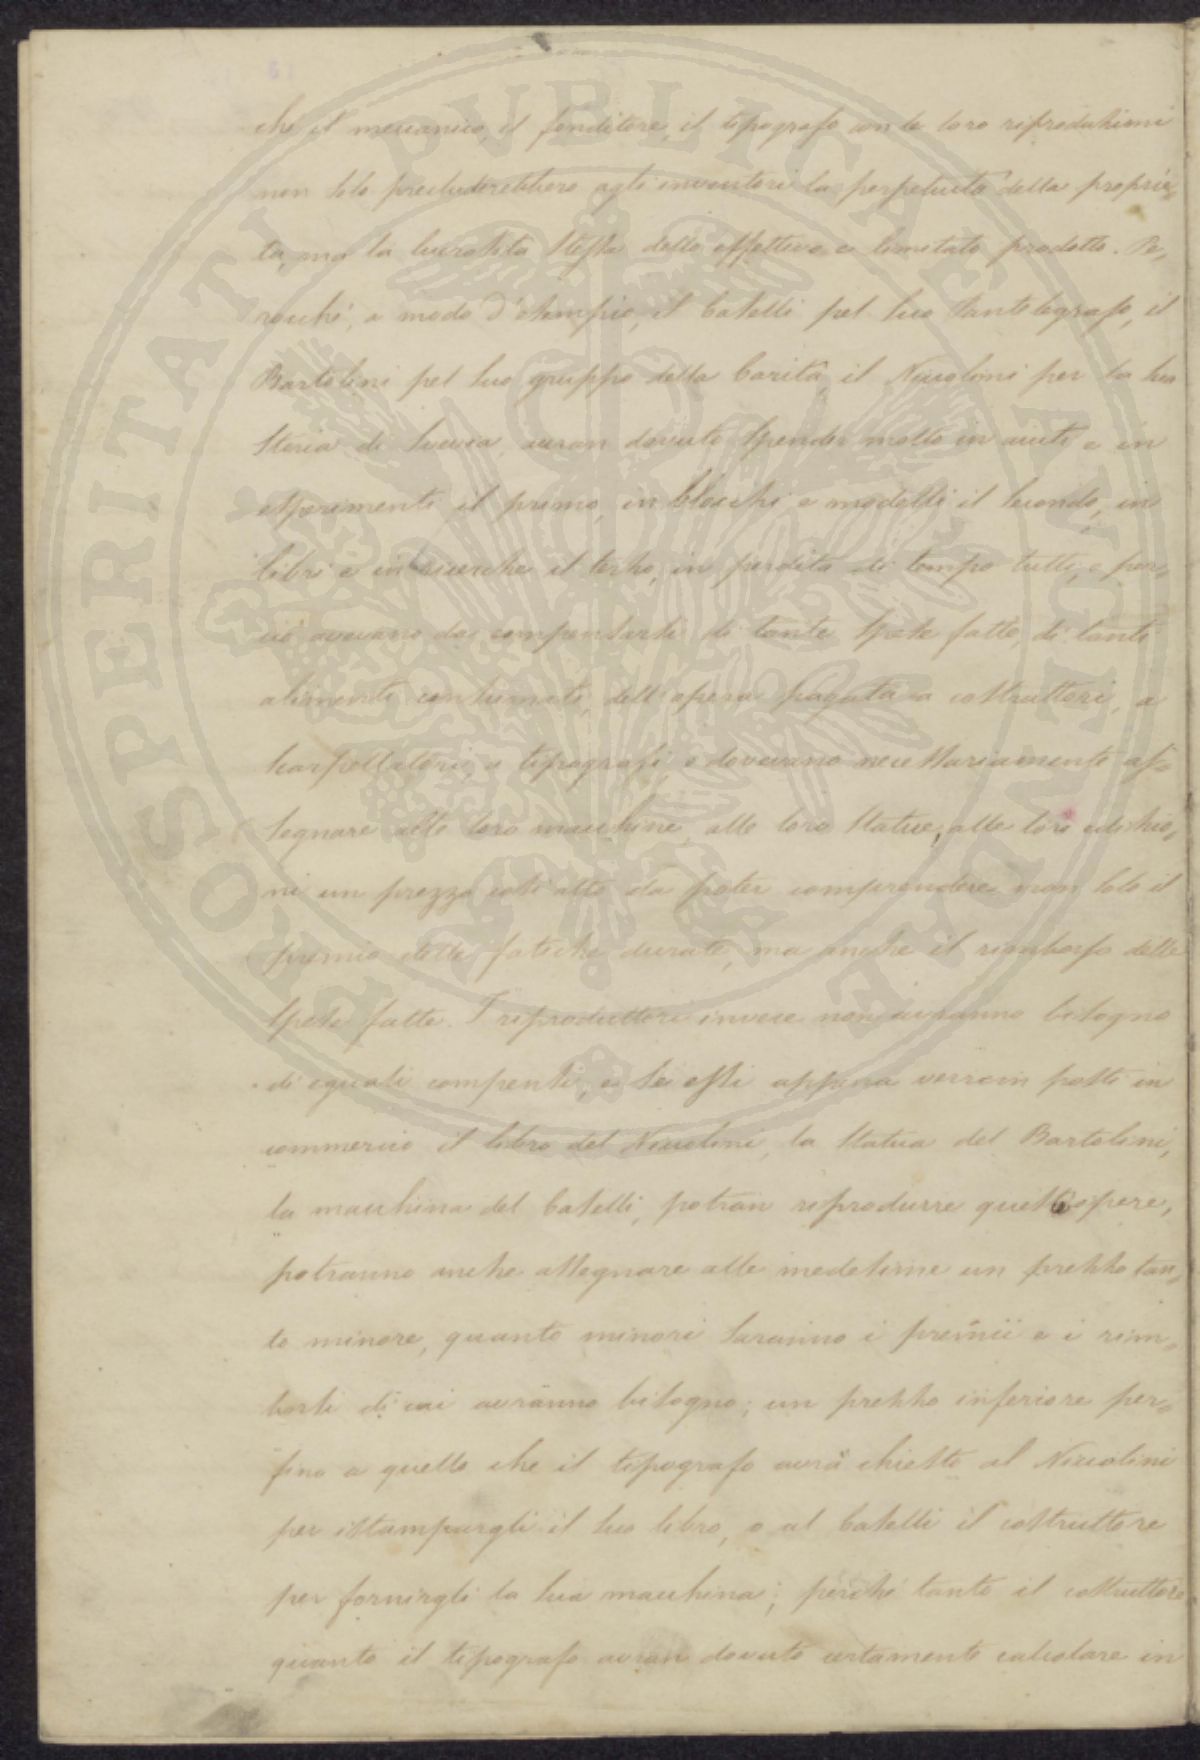 che il meccanico, il fonditore, il tipografo con le loro riproduzioni
non solo precluderebbero agli inventori la perpetuità della proprie-
tà, ma la lucrosità stessa dello effettivo e limitato prodotto. Pe-
rocchè, a modo d'esempio, il Caselli pel suo Pantelegrafo, il
Bartolini pel suo gruppo della Carità, il Niccolini per la sua
Storia di Svevia, avran dovuto spender molto in aiuti e in
esperimenti il primo, in blocchi e modelli il secondo, in
libri e in ricerche il terzo, in perdita di tempo tutti, e per-
ciò avevano da compensarsi di tante spese fatte, di tanti
alimenti consumati, dell'opera pagata a costruttori, a
scarpellatori, a tipografi, e dovevano necessariamente as-
segnare alle loro macchine, alle loro statue, alle loro edizio-
ni un prezzo così alto da poter comprendere non solo il
premio delle fatiche durate, ma anche il rimborso delle
spese fatte. I riproduttori invece non avranno bisogno
di eguali compensi, e se essi appena verran posti in
commercio il libro del Niccolini, la statua del Bartolini,
la macchina del Caselli, potran riprodurre quelle opere,
potranno anche assegnare alle medesime un prezzo tan-
to minore, quanto minori saranno i premii e i rim-
borsi di cui avranno bisogno; un prezzo inferiore per-
fino a quello che il tipografo avrà chiesto al Niccolini
per istampargli il suo libro, o al Caselli il costruttore
per fornirgli la sua macchina; perchè tanto il costruttore
quanto il tipografo avran dovuto certamente calcolare in
PROSPERITATI PVBLICAE AVGENDAE